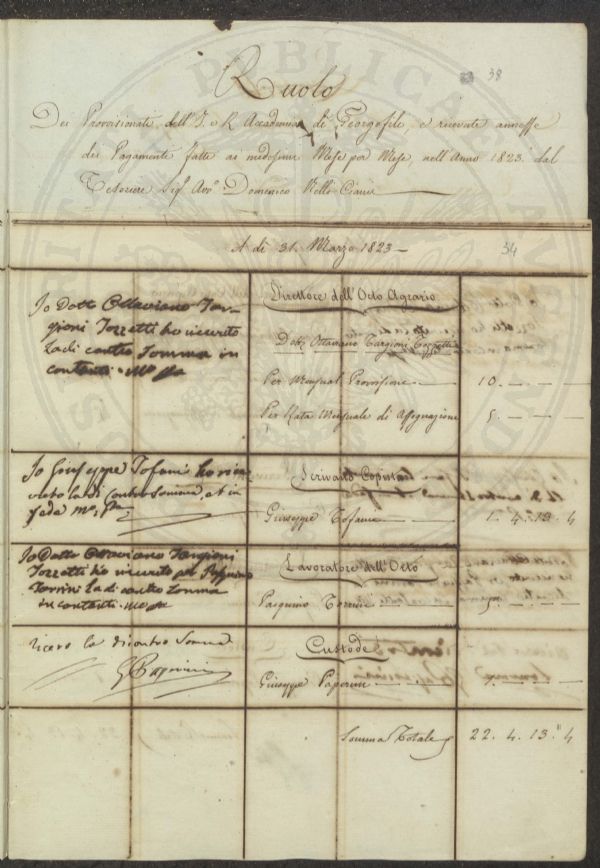 Ruolo
38
Dei Provisionati dell'I. e R. Accademia di Georgofili, e ricevute annesse
dei Pagamenti fatti ai medesimi Mese per Mese, nell'Anno 1823. dal
Tesoriere Sig. Avv. Domenico Nelli Ciani
A di 31. Marzo 1823
34
Io Dott. Ottaviano Tar-
gioni Tozzetti ho ricevuto
la di contro Somma in
contanti. Mo. pa
Direttore dell'Orto Agrario
Dott. Ottaviano Targioni Tozzetti
Per Mensual Provisione 10. — —
Per Rata Mensuale di Assegnazione 5. — —
Io Giuseppe Tofani ho rice
vuto la di contro Somma, et in
fede mo. pa.
Scrivano Copista
Giuseppe Tofani 1. 4. 13. 4
Io Dotto Ottaviano Targioni
Tozzetti ho ricevuto per Pasquino
Torrini la di contro Somma
in contanti. Mo pa
Lavoratore dell'Orto
Pasquino Torrini 5. —
ricevo la dicontro Somma
G Paperini
Custode
Giuseppe Paperini
Somma Totale 22. 4. 13. 4